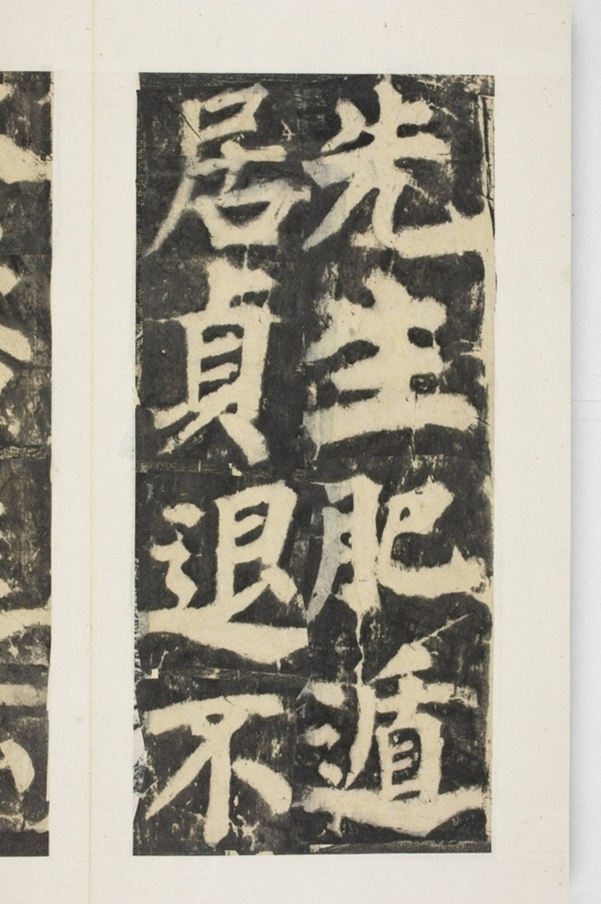 先生肥遁
居貞退不